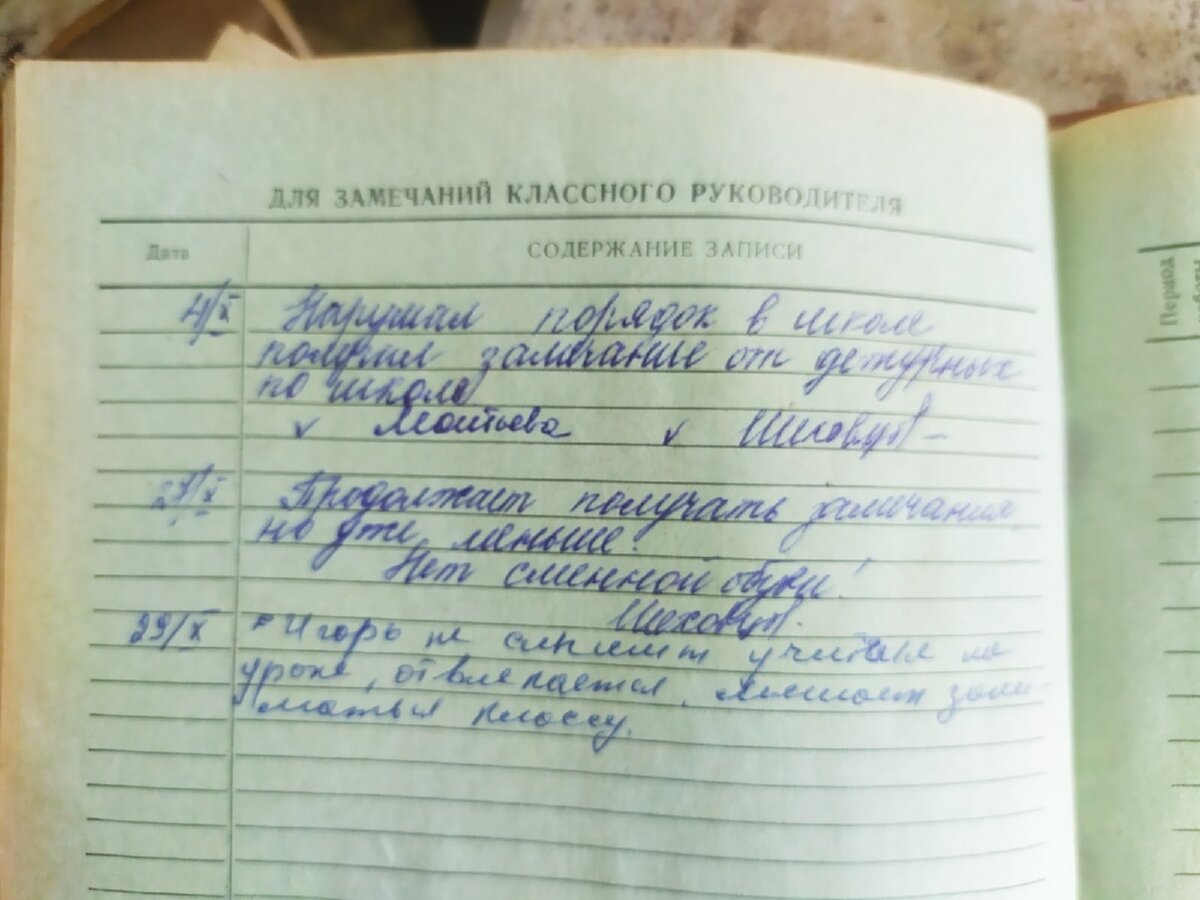 ДЛЯ ЗАМЕЧАНИЙ КЛАССНОГО РУКОВОДИТЕЛЯ
Дата СОДЕРЖАНИЕ ЗАПИСИ
4/X Нарушал порядок в школе
получил замечание от дежурных
по школе
Леонтьева
27/X Продолжает получать замечания,
но уже меньше.
Нет сменной обуви!
29/X Игорь не слушает учителя на
уроке, отвлекается, мешает зани-
маться классу.
Период